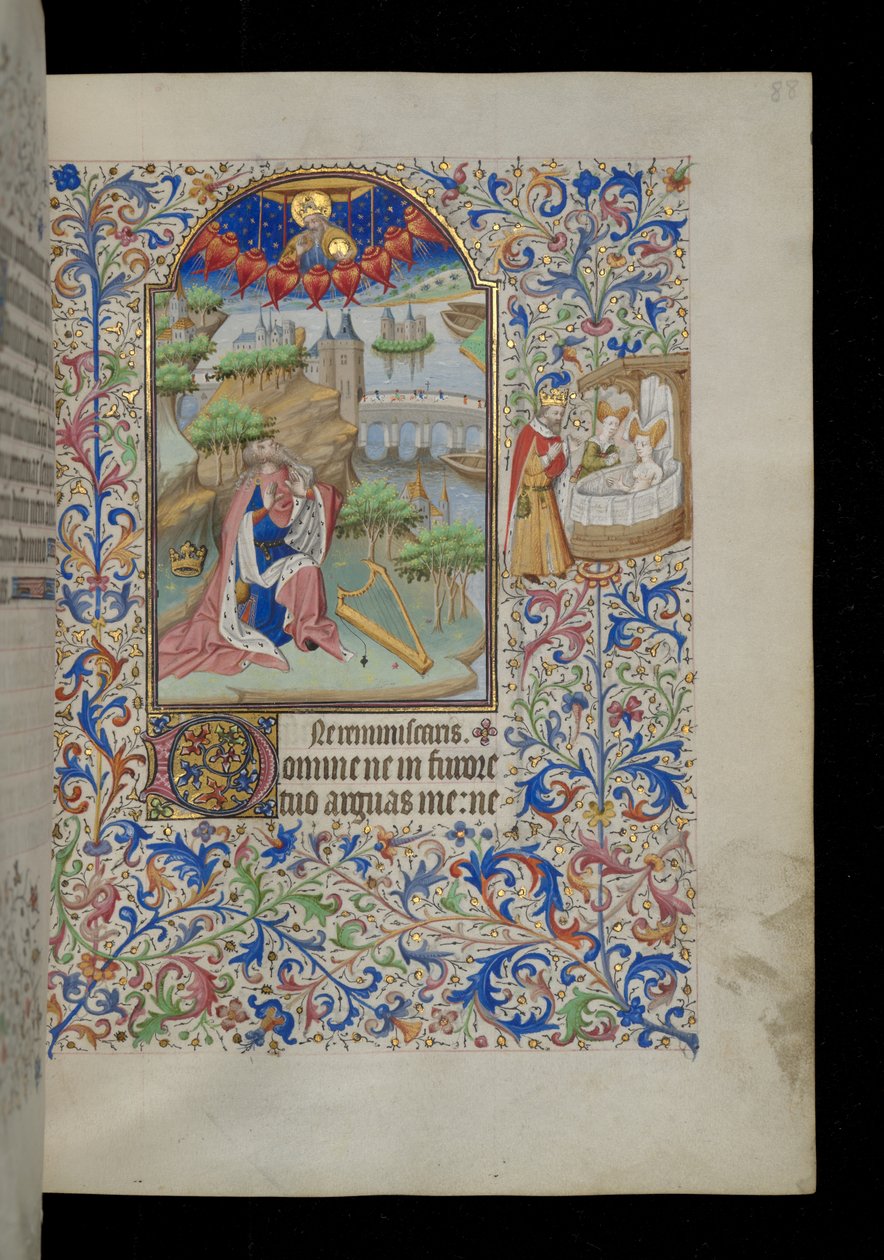 88
Ne reminiscaris.
Domine ne in furore
tuo arguas me: ne